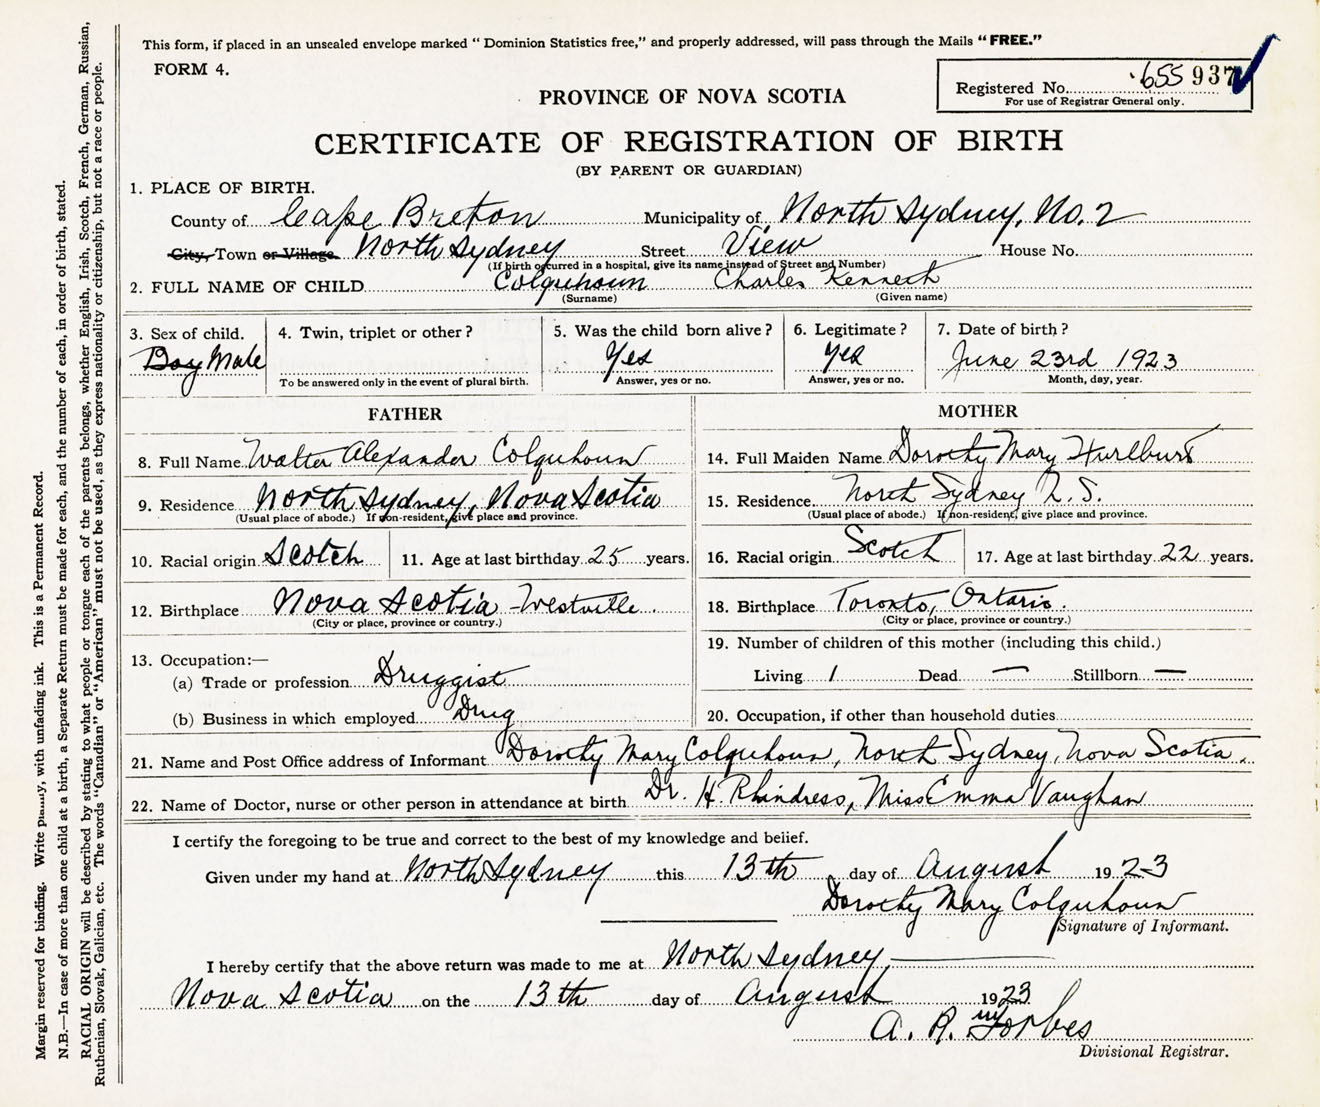 This form, if placed in an unsealed envelope marked “ Dominion Statistics free,” and properly addressed, will pass through the Mails “ FREE.”
FORM 4.
Registered No. 655 937
For use of Registrar General only.
PROVINCE OF NOVA SCOTIA
CERTIFICATE OF REGISTRATION OF BIRTH
(BY PARENT OR GUARDIAN)
1. PLACE OF BIRTH.
County of Cape Breton Municipality of North Sydney, No. 2
City, Town or Village North Sydney Street View House No.
(If birth occurred in a hospital, give its name instead of Street and Number)
2. FULL NAME OF CHILD Colquhoun Charles Kenneth
(Surname) (Given name)
3. Sex of child. 4. Twin, triplet or other ? 5. Was the child born alive ? 6. Legitimate ? 7. Date of birth ?
Boy Male Yes Yes June 23rd 1923
To be answered only in the event of plural birth. Answer, yes or no. Answer, yes or no. Month, day, year.
FATHER MOTHER
8. Full Name Walter Alexander Colquhoun 14. Full Maiden Name Dorothy Mary Hurlburt
9. Residence North Sydney, Nova Scotia 15. Residence North Sydney N. S.
(Usual place of abode.) If non-resident, give place and province. (Usual place of abode.) If non-resident, give place and province.
10. Racial origin Scotch 11. Age at last birthday 25 years. 16. Racial origin Scotch 17. Age at last birthday 22 years.
12. Birthplace Nova Scotia - Westville. 18. Birthplace Toronto, Ontario.
(City or place, province or country.) (City or place, province or country.)
19. Number of children of this mother (including this child.)
13. Occupation:—
(a) Trade or profession Druggist Living 1 Dead — Stillborn —
(b) Business in which employed Drug 20. Occupation, if other than household duties
21. Name and Post Office address of Informant Dorothy Mary Colquhoun, North Sydney, Nova Scotia.
22. Name of Doctor, nurse or other person in attendance at birth Dr. H. Rhindress, Miss Emma Vaughan
I certify the foregoing to be true and correct to the best of my knowledge and belief.
Given under my hand at North Sydney this 13th day of August 1923
Dorothy Mary Colquhoun
Signature of Informant.
I hereby certify that the above return was made to me at North Sydney,
Nova Scotia on the 13th day of August 1923
A. R. Forbes
Divisional Registrar.
Margin reserved for binding. Write with unfading ink. This is a Permanent Record.
N.B.—In case of more than one child at a birth, a Separate Return must be made for each, and the number of each, in order of birth, stated.
RACIAL ORIGIN will be described by stating to what people or tongue each of the parents belongs, whether English, Irish, Scotch, French, German, Russian,
Ruthenian, Slovak, Galician, etc. The words “Canadian” or “American” must not be used, as they express nationality or citizenship, but not a race or people.